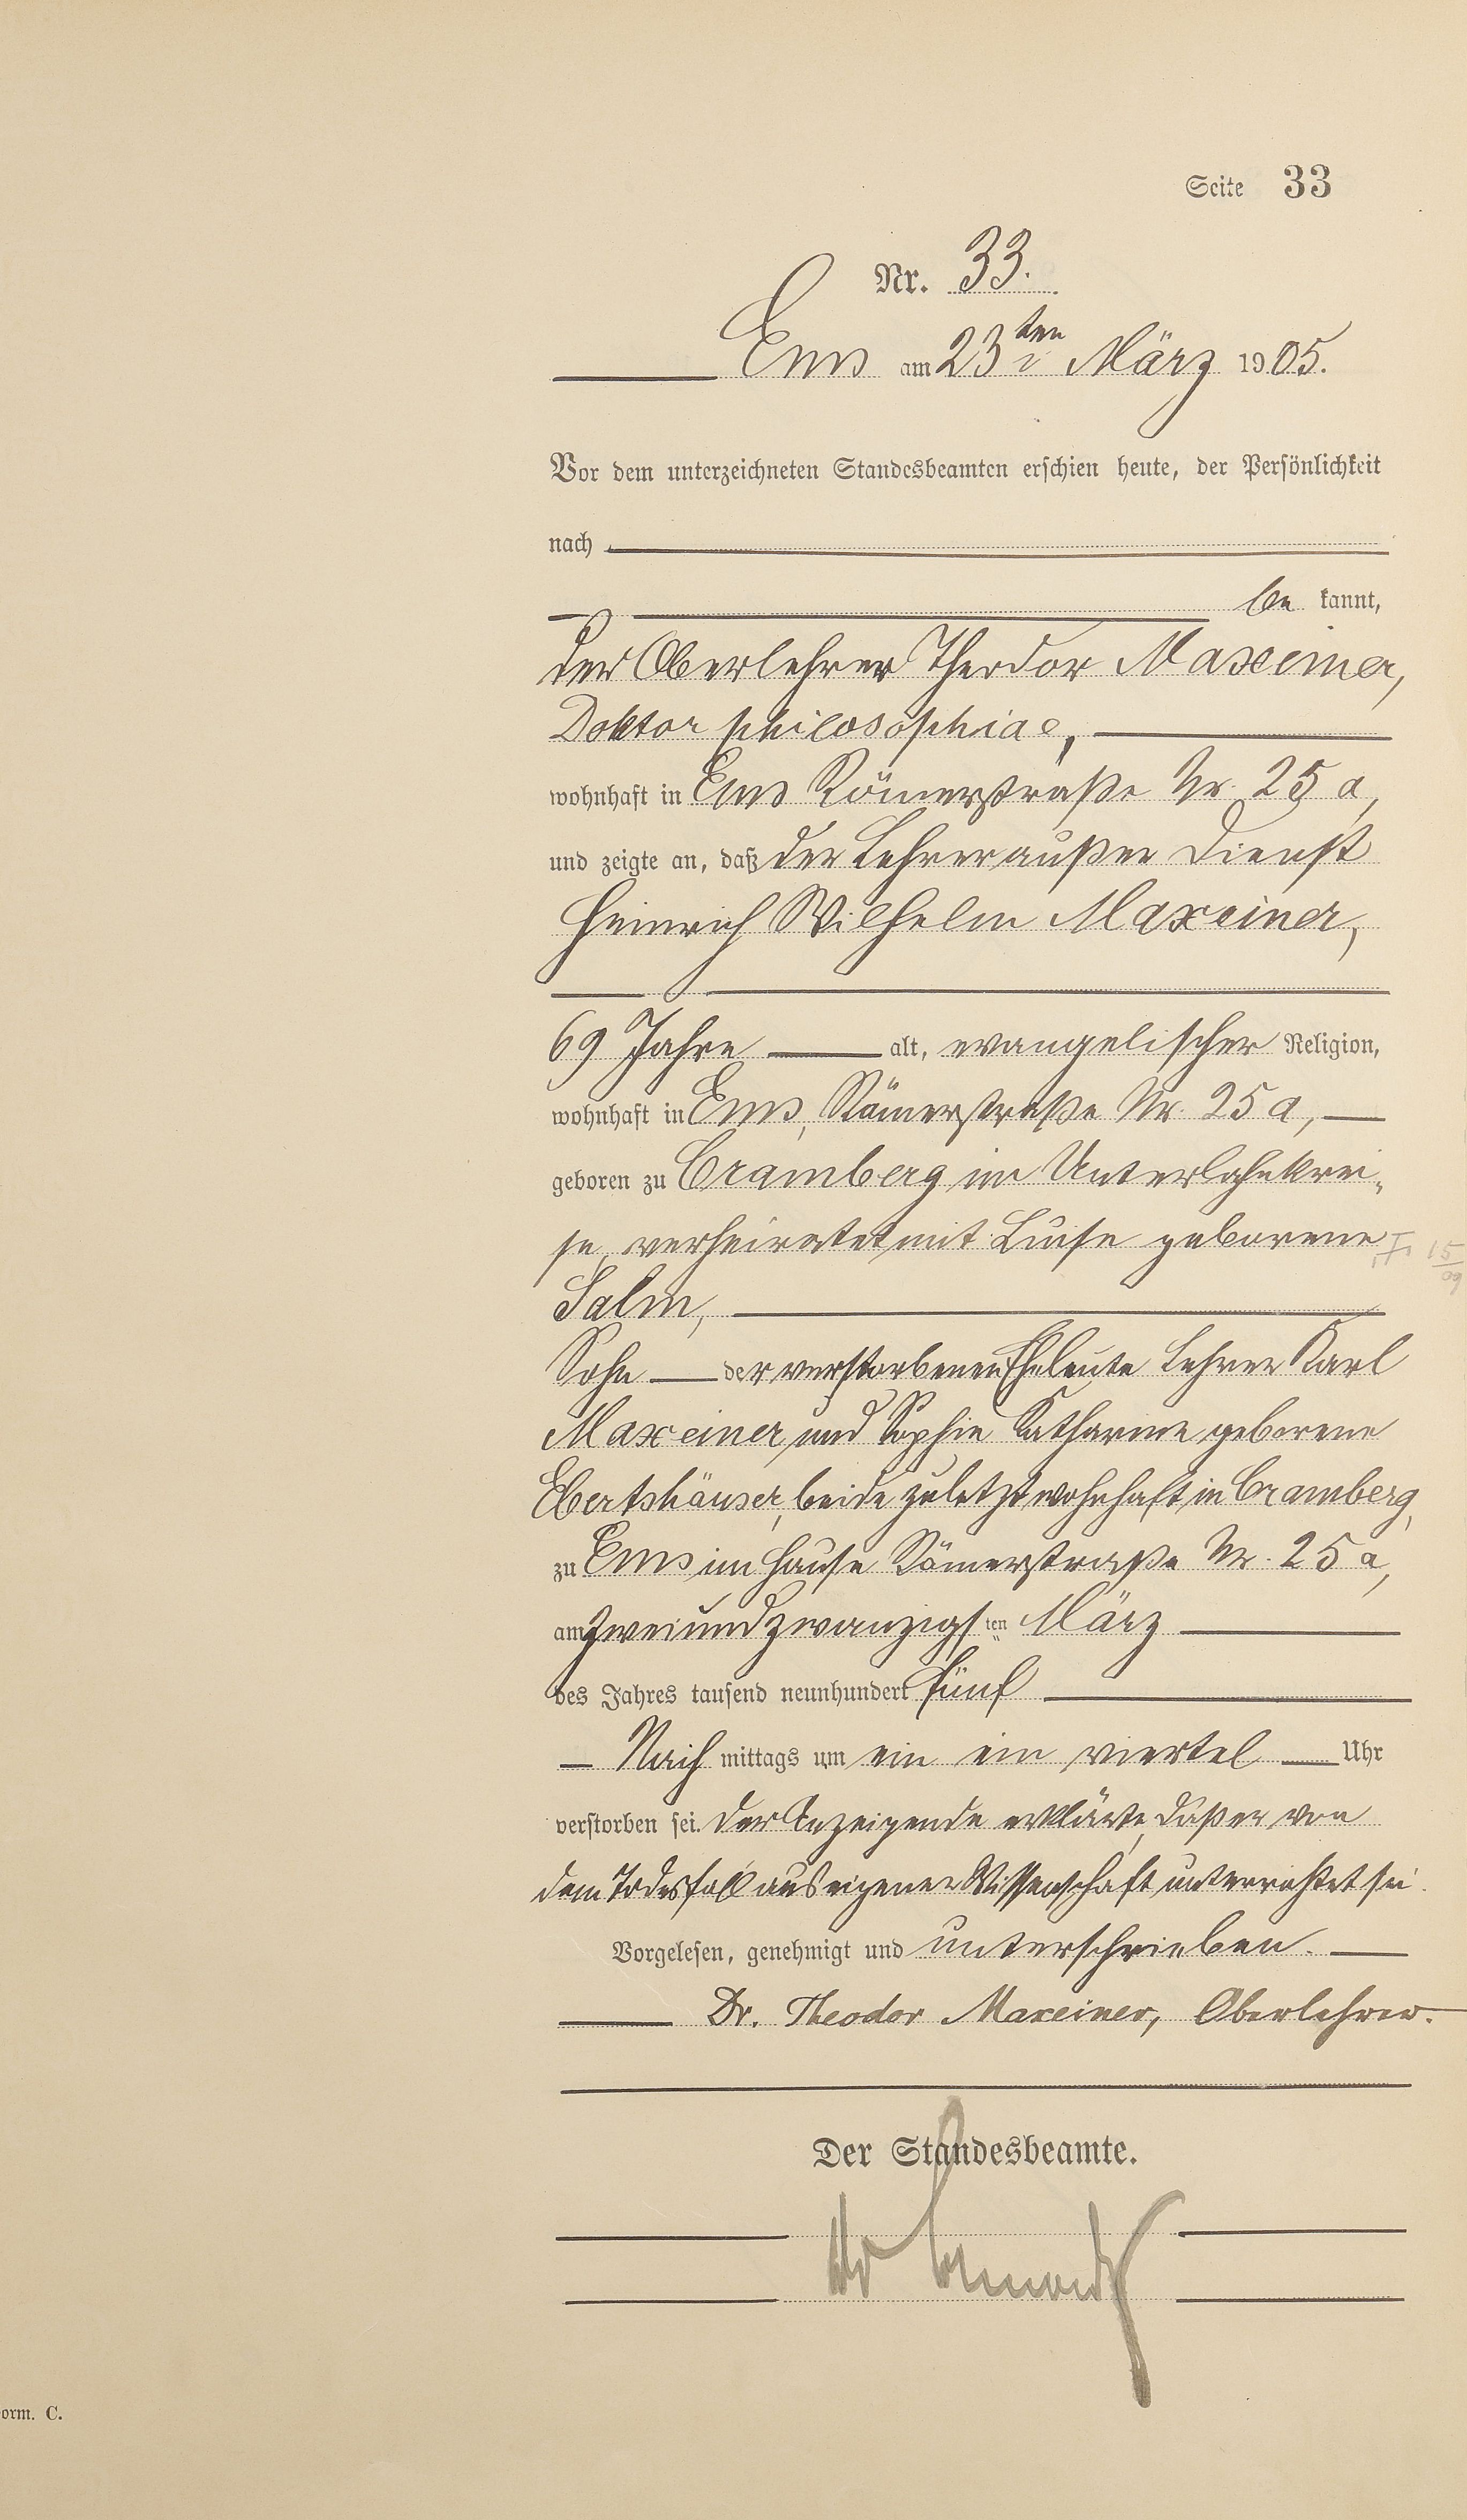 Seite 33
Nr. 33.
Ems am 23ten März 1905.
Vor dem unterzeichneten Standesbeamten erschien heute, der Persönlichkeit
nach
be kannt,
der Oberlehrer Theodor Maxeiner,
Doktor philosophiae,
wohnhaft in Ems Römerstraße Nr. 25 a,
und zeigte an, daß der Lehrer außer Dienst
Heinrich Wilhelm Maxeiner,
69 Jahre alt, evangelischer Religion,
wohnhaft in Ems, Römerstraße Nr. 25 a,
geboren zu Cramberg im Unterlahnkrei-
se, verheiratet mit Luise geborene
Salm,
Sohn der verstorbenen Eheleute Lehrer Karl
Maxeiner und Sophie Katharine geborene
Ebertshäuser, beide zuletzt wohnhaft in Cramberg,
zu Ems im Hause Römerstraße Nr. 25 a,
am zweiundzwanzigsten März
des Jahres tausend neunhundert fünf
Nach mittags um ein ein viertel Uhr
verstorben sei. Der Anzeigende erklärte, daß er von
dem Todesfall aus eigener Wissenschaft unterrichtet sei.
Vorgelesen, genehmigt und unterschrieben.
Dr. Theodor Maxeiner, Oberlehrer.
Der Standesbeamte.
orm. C.